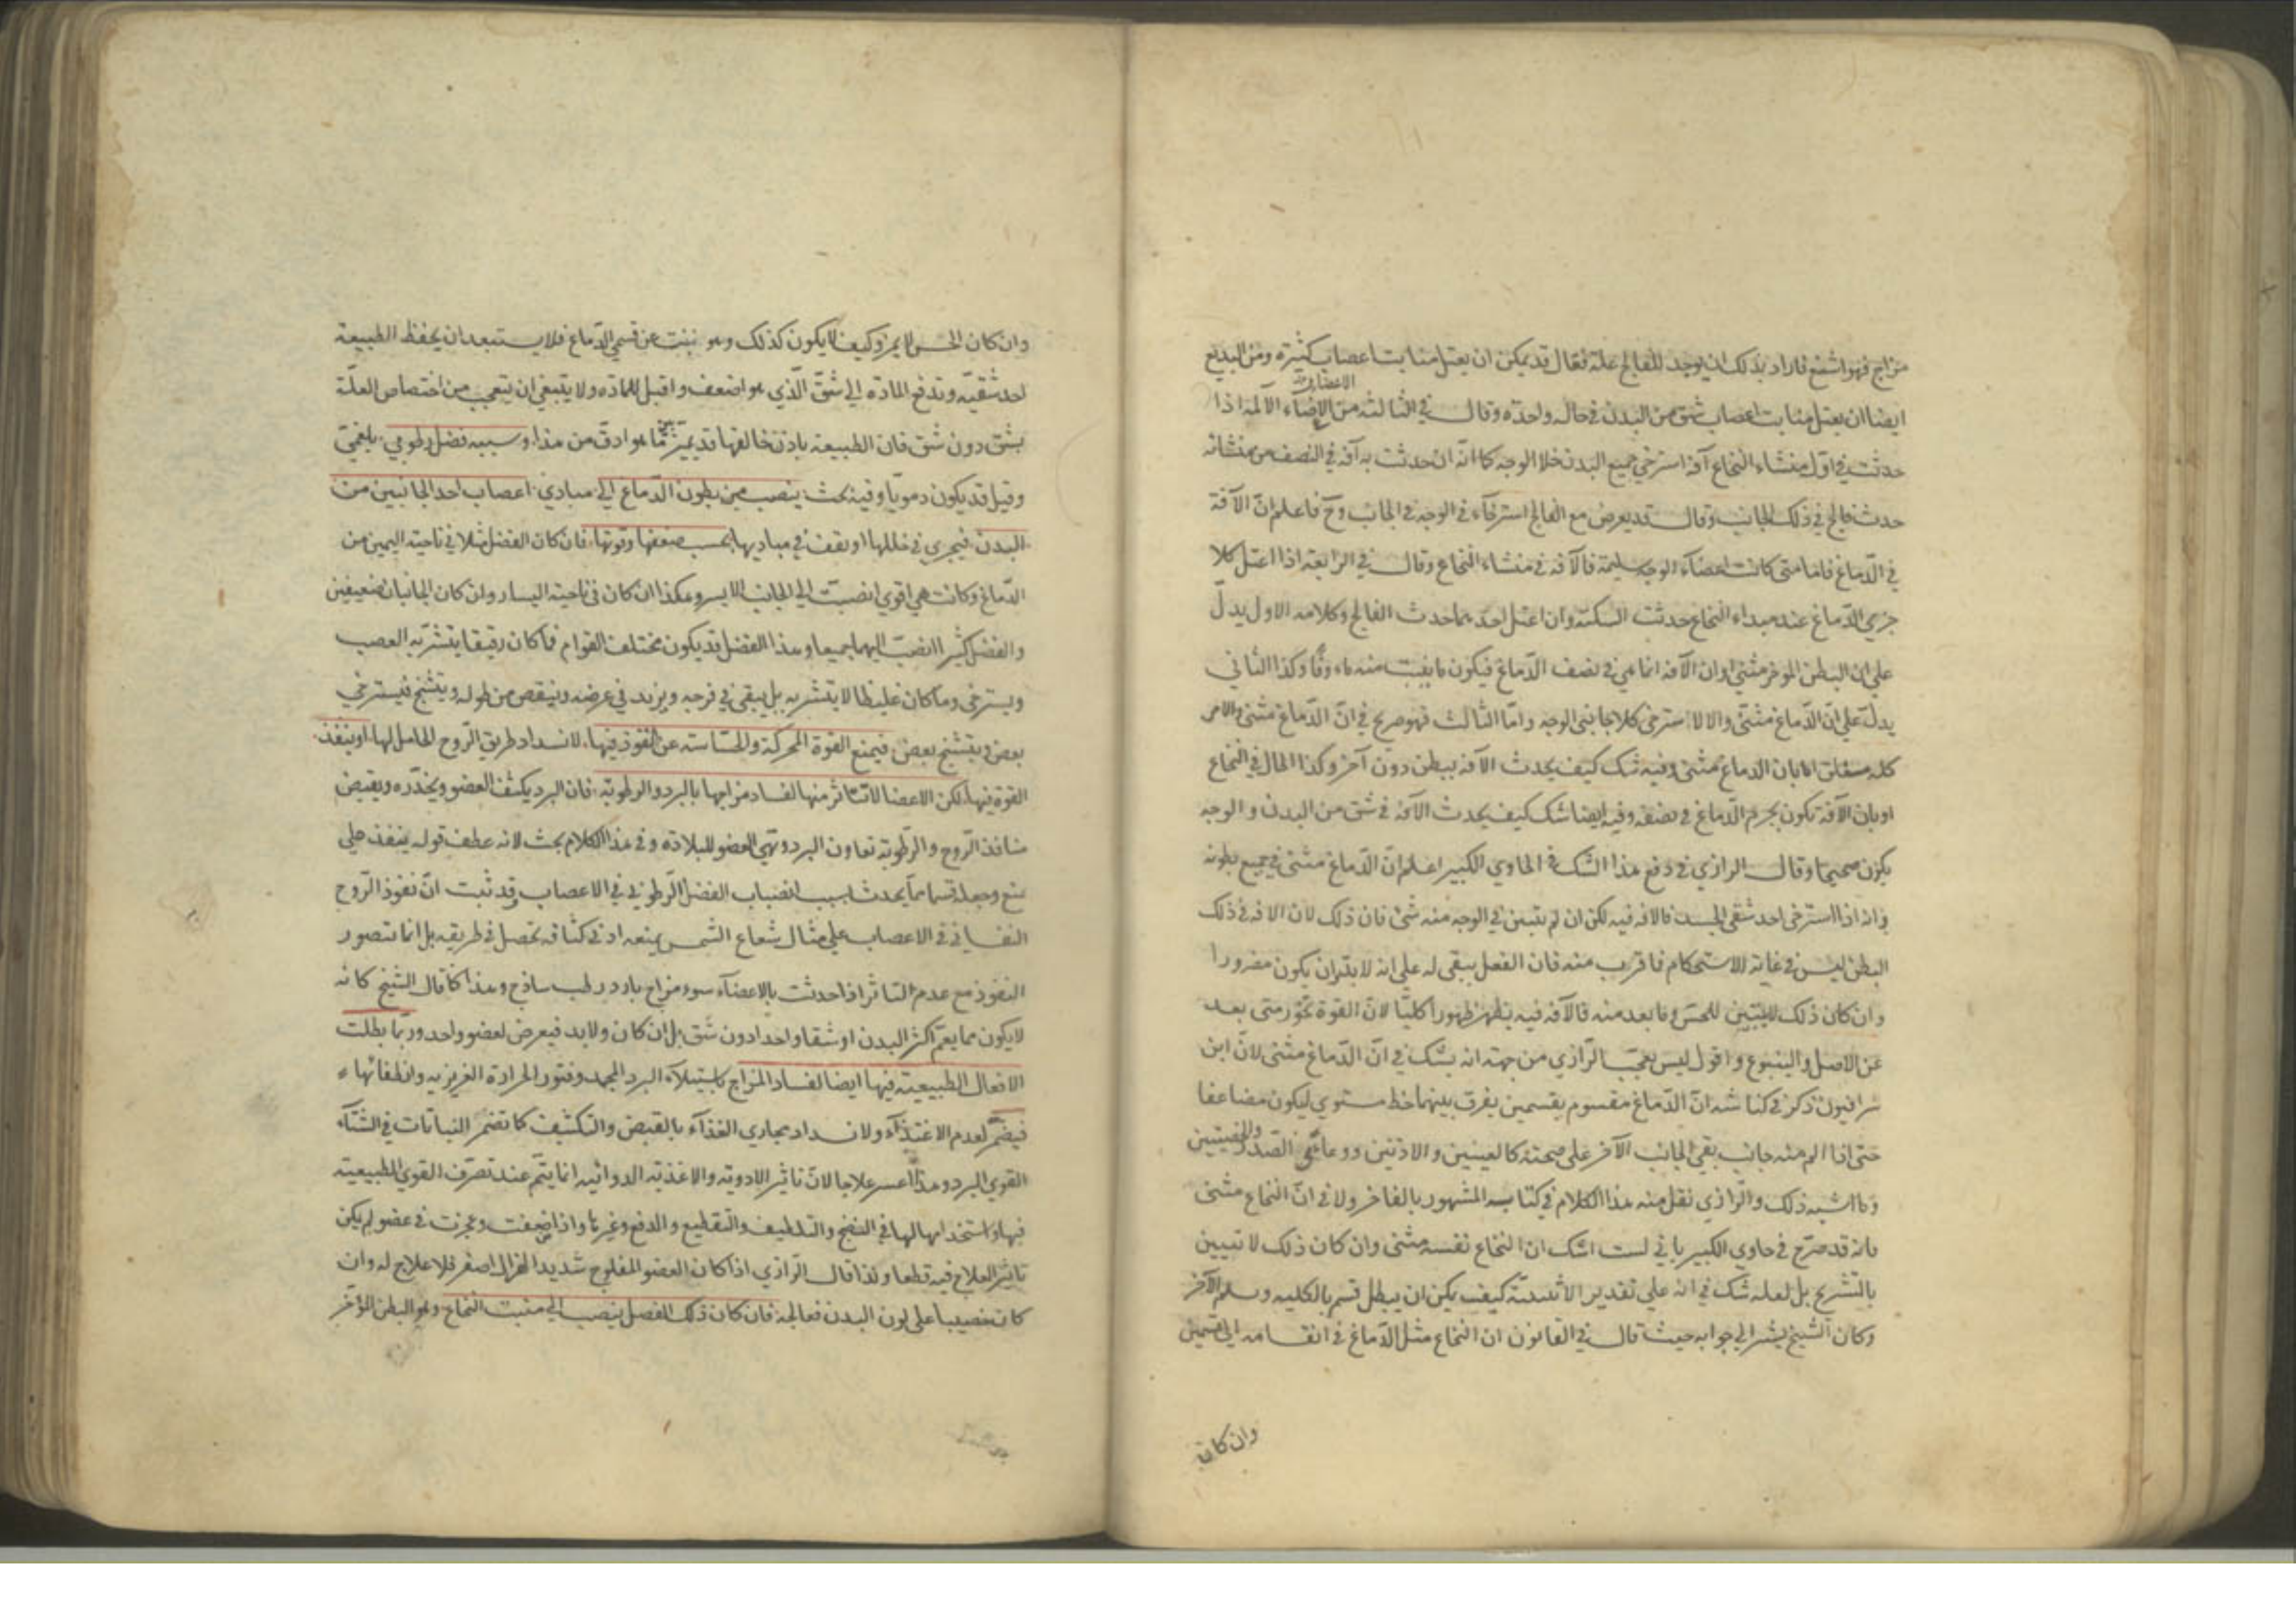 مزاج فهو اشنع فاراد بذلك ان يوجد للفالج علة فقال قد يمكن ان يعتل منابت اعصاب كثيرة ومن البديع
الاعضاء
ايضا ان يعتل منابت اعصاب شق من البدن في حالة واحدة وقال في الثالثة من الاعضاء الآلمة اذا
حدثت في اول منشاء النخاع آفة استرخي جميع البدن خلا الوجه كما انه ان حدثت به آفة في النصف من منشائه
حدث فالج في ذلك الجانب وقال قد يعرض مع الفالج استرخاء في الوجه في الجانب وح فاعلم ان الآفة
في الدماغ فاما متي كانت اعضاء الوجه سليمة فالآفة في منشاء النخاع وقال في الرابعة اذا اعتل كلا
جزءي الدماغ عند مبداء النخاع حدثت السكتة وان اعتل احدهما حدث الفالج وكلامه الاول يدل
علي ان البطن الموخر مثني او ان الآفة انما هي في نصف الدماغ فيكون ما ينبت منه ماوفا وكذا الثاني
يدل علي ان الدماغ مثني والا لاسترخي كلا جانبي الوجه واما الثالث فهو صريح في ان الدماغ مثني والامر
كله متعلق اما بان الدماغ مثني وفيه شك كيف يحدث الآفة ببطن دون آخر وكذا الحال في النخاع
او بان الآفة تكون بجرم الدماغ في نصفه وفيه ايضا شك كيف يحدث الآفة في شق من البدن والوجه
يكون صحيحا وقال الرازي في دفع هذا الشك في الحاوي الكبير اعلم ان الدماغ مثني في جميع بطونه
وانه اذا استرخي احد شقي الجسد فالآفة فيه لكن ان لم يتبين في الوجه منه شئ فان ذلك لان الآفة في ذلك
البطن ليس في غاية الاستحكام فما قرب منه فان الفعل يبقي له علي انه لا بد ان يكون مضرورا
وان كان ذلك لا يتبين للحس وما بعد منه فالآفة فيه يظهر ظهورا كليا لان القوة تخور متي بعد
عن الاصل والينبوع واقول ليس تعجب الرازي من جهة انه يشك في ان الدماغ مثني لان ابن
سرافيون ذكر في كناشه ان الدماغ مقسوم بقسمين يفرق بينهما خط مستوي ليكون مضاعفا
حتي اذا الم منه جانب بقي الجانب الآخر علي صحته كالعينين والاذنين ووعائي الصدر والخصيتين
وما اشبه ذلك والرازي نقل منه هذا الكلام في كتابه المشهور بالفاخر ولا في ان النخاع مثني
فانه قد صرح في حاوي الكبير باني لست اشك ان النخاع نفسه مثني وان كان ذلك لا تبيين
بالتشريح بل لعله شك في انه علي تقدير الاثنينية كيف يمكن ان يبطل قسم بالكلية وسلم الآخر
وكان الشيخ يشير الي جوابه حيث قال في القانون ان النخاع مثل الدماغ في انقسامه الي قسمين
وان كان
وان كان الحس لا يميزه وكيف لا يكون كذلك وهو ينبت عن قسمي الدماغ فلا يستبعد ان يحفظ الطبيعة
احد شقيه وتدفع المادة الي شق الذي هو اضعف واقبل للمادة ولا ينبغي ان يتعجب من اختصاص العلة
بشق دون شق فان الطبيعة باذن خالقها قد يميز ما هو ادق من هذا وسببه فضل رطوبي بلغمي
وقيل قد يكون دمويا وفيه بحث ينصب من بطون الدماغ الي مبادي اعصاب احد الجانبين من
البدن فيجري في خللها او يقف في مباديها بحسب ضعفها وقوتها فان كان الفضل مثلا في ناحية اليمين من
الدماغ وكانت هي اقوي انصبت الي الجانب الايسر وهكذا ان كان في ناحية اليسار وان كان الجانبان ضعيفين
والفضل كثيرا انصب اليهما جميعا وهذا الفضل قد يكون مختلف القوام فما كان رقيقا يتشربه العصب
ويسترخي وما كان غليظا لا يتشربه بل يبقي في فرجه ويزيد في عرضه وينقص من طوله ويتشنج فيسترخي
بعض ويتشنج بعض فيمنع القوة المحركة والحساسة عن النفوذ فيها لانسداد طريق الروح الحامل لها او ينفذ
القوة فيها لكن الاعضا لا تتاثر منها لفساد مزاجها بالبرد والرطوبة فان البرد يكثف العضو ويخدره ويقبض
منافذ الروح والرطوبة تعاون البرد وتهيئ العضو للبلادة وفي هذا الكلام بحث لانه عطف قوله ينفذ علي
يمنع وجعله قسما مما يحدث بسبب انصباب الفضل الرطوبي في الاعصاب وقد ثبت ان نفوذ الروح
النفساني في الاعصاب علي مثال شعاع الشمس يمنعه ادني كثافة تحصل في طريقه بل انما يتصور
النفوذ مع عدم التاثر اذا حدثت بالاعضاء سوء مزاج بارد رطب ساذج وهذا كما قال الشيخ كانه
لا يكون مما يعم اكثر البدن او شقا واحدا دون شق بل ان كان ولا بد فيعرض لعضو واحد وربما بطلت
الافعال الطبيعية فيها ايضا لفساد المزاج باستيلاء البرد المجمد وفتور الحرارة الغريزية وانطفائها
فيضمر لعدم الاغتذاء ولانسداد مجاري الغذاء بالقبض والتكثيف كما تضمر النباتات في الشتاء
القوي البرد وهذا اعسر علاجا لان تاثير الادوية والاغذية الدوائية انما يتم عند تصرف القوي الطبيعية
فيها واستخدامها لها في النضج والتلطيف والتقطيع والدفع وغيرها واذا ضعفت وعجزت في عضو لم يكن
تاثير العلاج فيه قطعا ولذا قال الرازي اذا كان العضو المفلوج شديد الهزال اصفر فلا علاج له وان
كان خصيبا علي لون البدن فعالجه فان كان ذلك الفضل ينصب الي منبت النخاع وهو البطن المؤخر